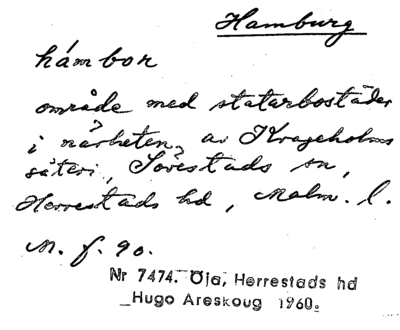 Hamburg
hámbor
område med statarbostäder
i närheten av Krageholms
säteri, Sövestads sn,
Herrestads hd, Malm. l.
M. f. 90.
Nr 7474. Öja, Herrestads hd
Hugo Areskoug 1960.